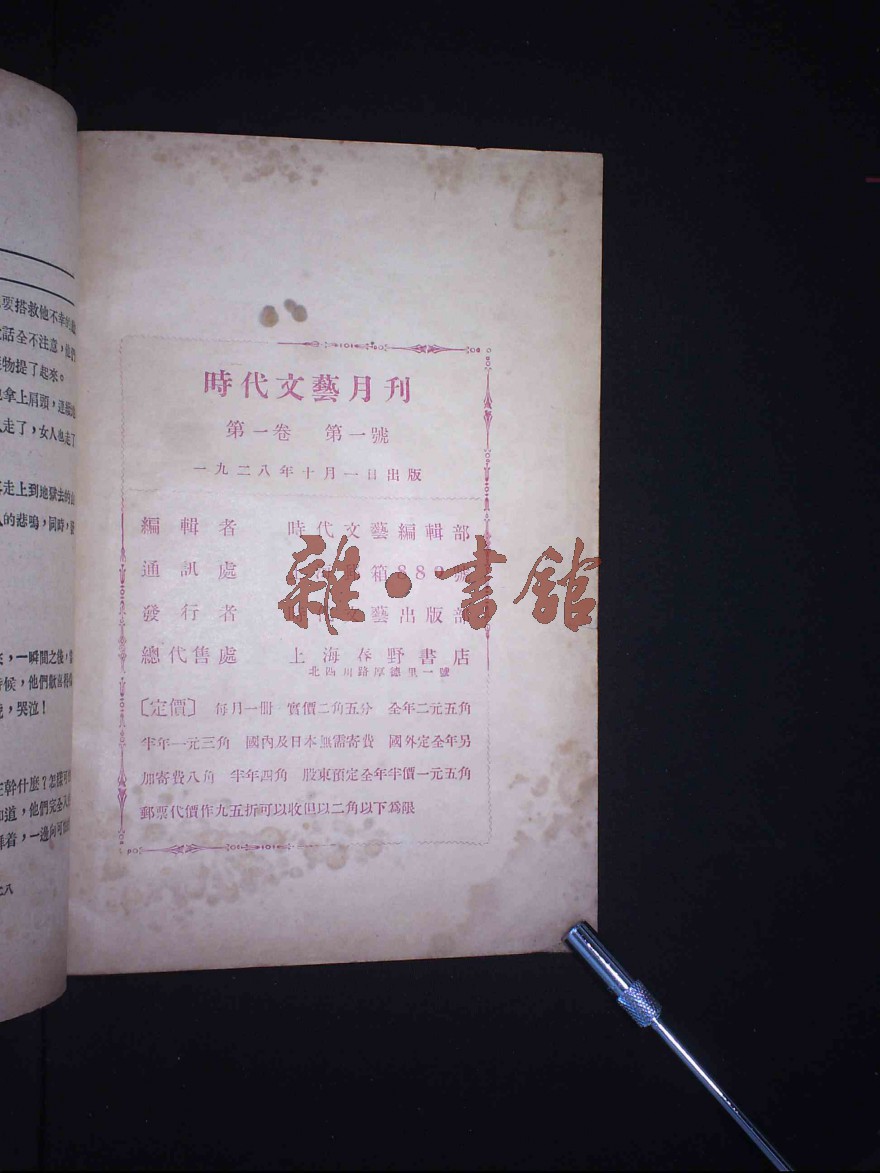 時代文藝月刊
第一卷 第一號
一九二八年十月一日出版
編輯者 時代文藝編輯部
通訊處 箱889號
發行者 時代文藝出版部
總代售處 上海春野書店
北四川路厚德里一號
〔定價〕 每月一冊 實價二角五分 全年二元五角
半年一元三角 國內及日本無需寄費 國外定全年另
加寄費八角 半年四角 股東預定全年半價一元五角
郵票代價作九五折可以收但以二角以下為限
雜·書館
要搭救他不幸的
話全不注意，他們
物提了起來。
拿上肩頭，
走了，女人也走了
走上到地獄去的山
的悲鳴，同時，
，一瞬間之後，
候，他們歡喜得
，哭泣！
在幹什麼？怎樣可
知道，他們完全
着，一邊向可
八